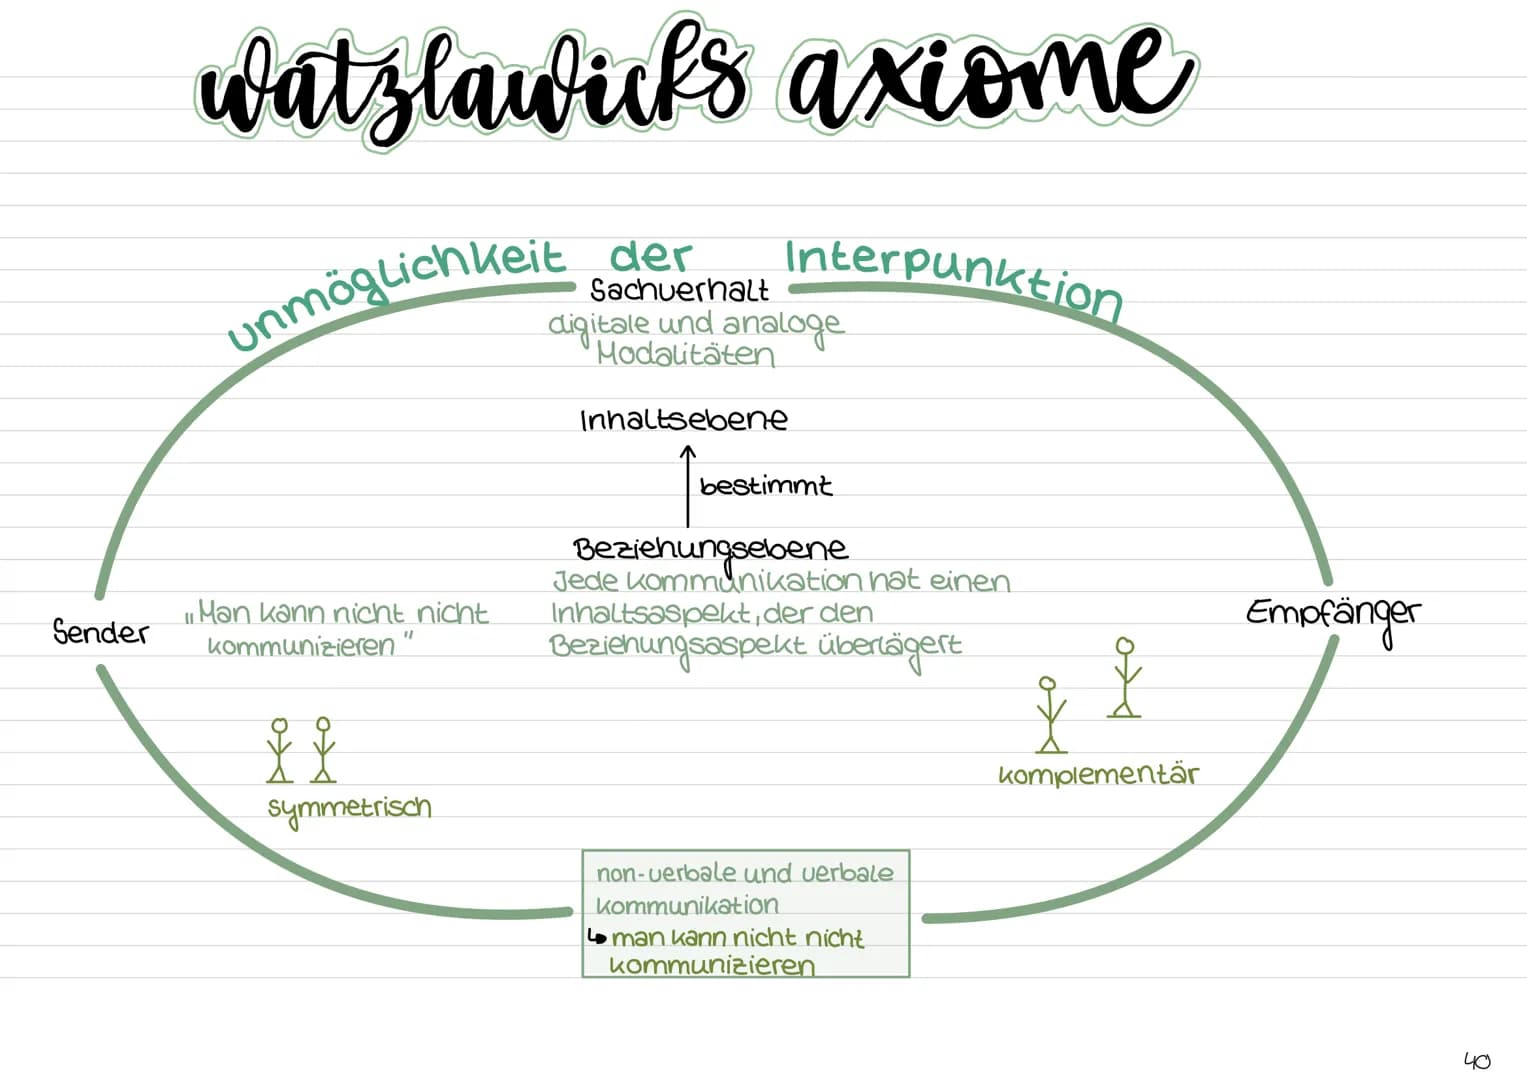 watzlawicks axiome
unmöglichkeit der Interpunktion
Sachverhalt
digitale und analoge
Modalitäten
Inhaltsebene
bestimmt
Beziehungsebene
Jede kommunikation hat einen
Inhaltsaspekt, der den
Beziehungsaspekt überlägert
Sender
„Man kann nicht nicht
kommunizieren"
Empfänger
symmetrisch
komplementär
non-verbale und verbale
kommunikation
↳ man kann nicht nicht
kommunizieren
40